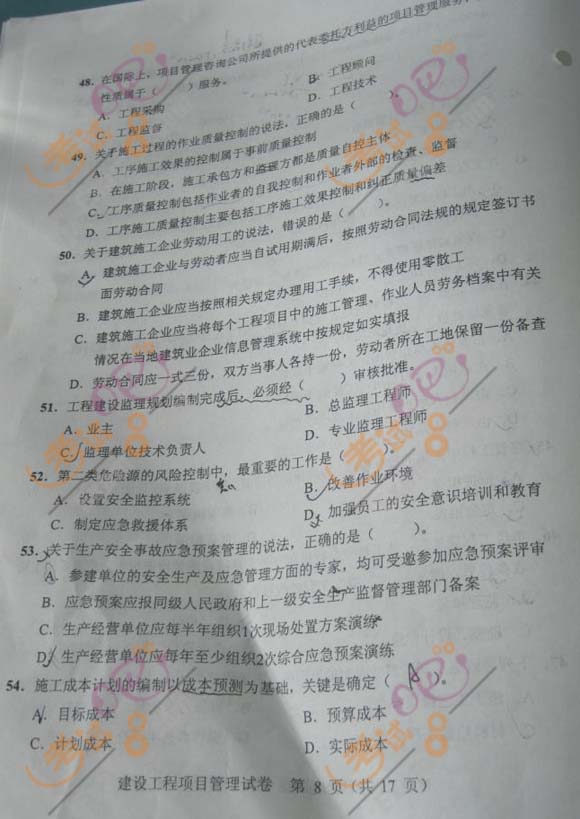 48. 在国际上，项目管理咨询公司所提供的代表委托方利益的项目管理服务，
性质属于（ ）服务。
A. 工程采购 B. 工程顾问
C. 工程监督 D. 工程技术
49. 关于施工过程的作业质量控制的说法，正确的是（ ）。
A. 工序施工效果的控制属于事前质量控制
B. 在施工阶段，施工承包方和监理方都是质量自控主体
C. 工序质量控制包括作业者的自我控制和作业者外部的检查、监督
D. 工序施工质量控制主要包括工序施工效果控制和纠正质量偏差
50. 关于建筑施工企业劳动用工的说法，错误的是（ ）。
A. 建筑施工企业与劳动者应当自试用期满后，按照劳动合同法规的规定签订书
面劳动合同
B. 建筑施工企业应当按照相关规定办理用工手续，不得使用零散工
C. 建筑施工企业应当将每个工程项目中的施工管理、作业人员劳务档案中有关
情况在当地建筑业企业信息管理系统中按规定如实填报
D. 劳动合同应一式三份，双方当事人各持一份，劳动者所在工地保留一份备查
51. 工程建设监理规划编制完成后，必须经（ ）审核批准。
A. 业主 B. 总监理工程师
C. 监理单位技术负责人 D. 专业监理工程师
52. 第二类危险源的风险控制中，最重要的工作是（ ）。
A. 设置安全监控系统 B. 改善作业环境
C. 制定应急救援体系 D. 加强员工的安全意识培训和教育
53. 关于生产安全事故应急预案管理的说法，正确的是（ ）。
A. 参建单位的安全生产及应急管理方面的专家，均可受邀参加应急预案评审
B. 应急预案应报同级人民政府和上一级安全生产监督管理部门备案
C. 生产经营单位应每半年组织1次现场处置方案演练
D. 生产经营单位应每年至少组织2次综合应急预案演练
54. 施工成本计划的编制以成本预测为基础，关键是确定（ A ）。
A. 目标成本 B. 预算成本
C. 计划成本 D. 实际成本
建设工程项目管理试卷 第 8 页（共 17 页）
考试吧